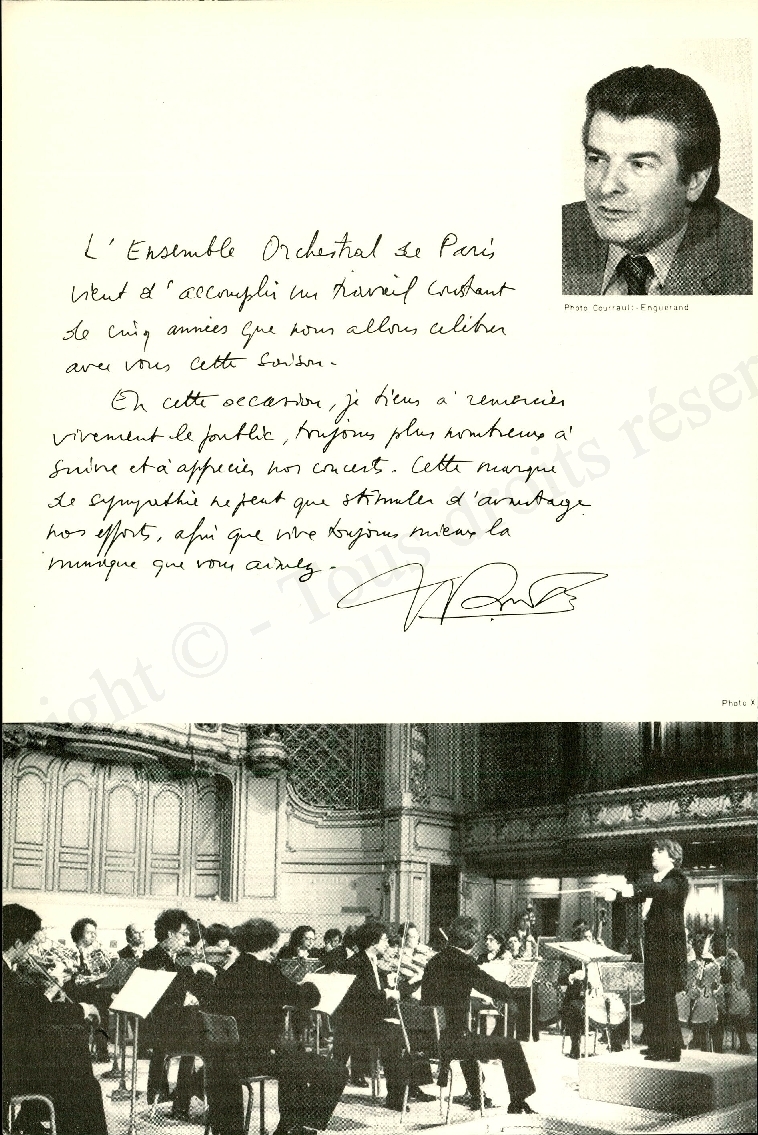 Photo Courrault-Enguerand
L'Ensemble Orchestral de Paris
vient d'accomplir un travail constant
de cinq années que nous allons célébrer
avec vous cette saison.
En cette occasion, je tiens à remercier
vivement le public, toujours plus nombreux à
suivre et à apprécier nos concerts. Cette marque
de sympathie ne peut que stimuler d'avantage
nos efforts, afin que vive toujours mieux la
musique que vous aimez.
Photo X
© - Tous droits réser